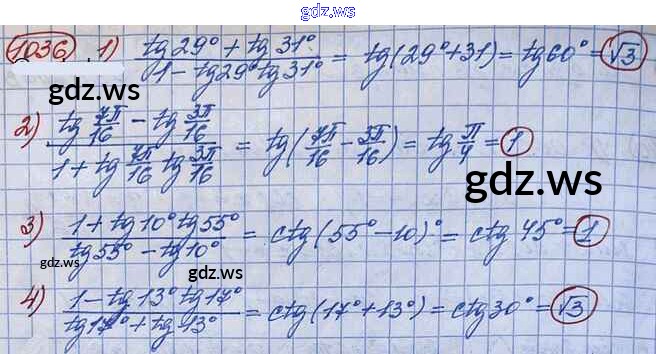 gdz.ws
1036) 1) (tg29° + tg31°)/(1 - tg29° tg31°) = tg(29°+31) = tg60° = √3
gdz.ws
2) (tg 7π/16 - tg 3π/16)/(1 + tg 7π/16 tg 3π/16) = tg(7π/16 - 3π/16) = tg π/4 = 1
gdz.ws
gdz.ws
3) (1 + tg10° tg55°)/(tg55° - tg10°) = ctg(55° - 10)° = ctg 45° = 1
gdz.ws
gdz.ws
4) (1 - tg13° tg17°)/(tg17° + tg13°) = ctg(17° + 13°) = ctg30° = √3
gdz.ws